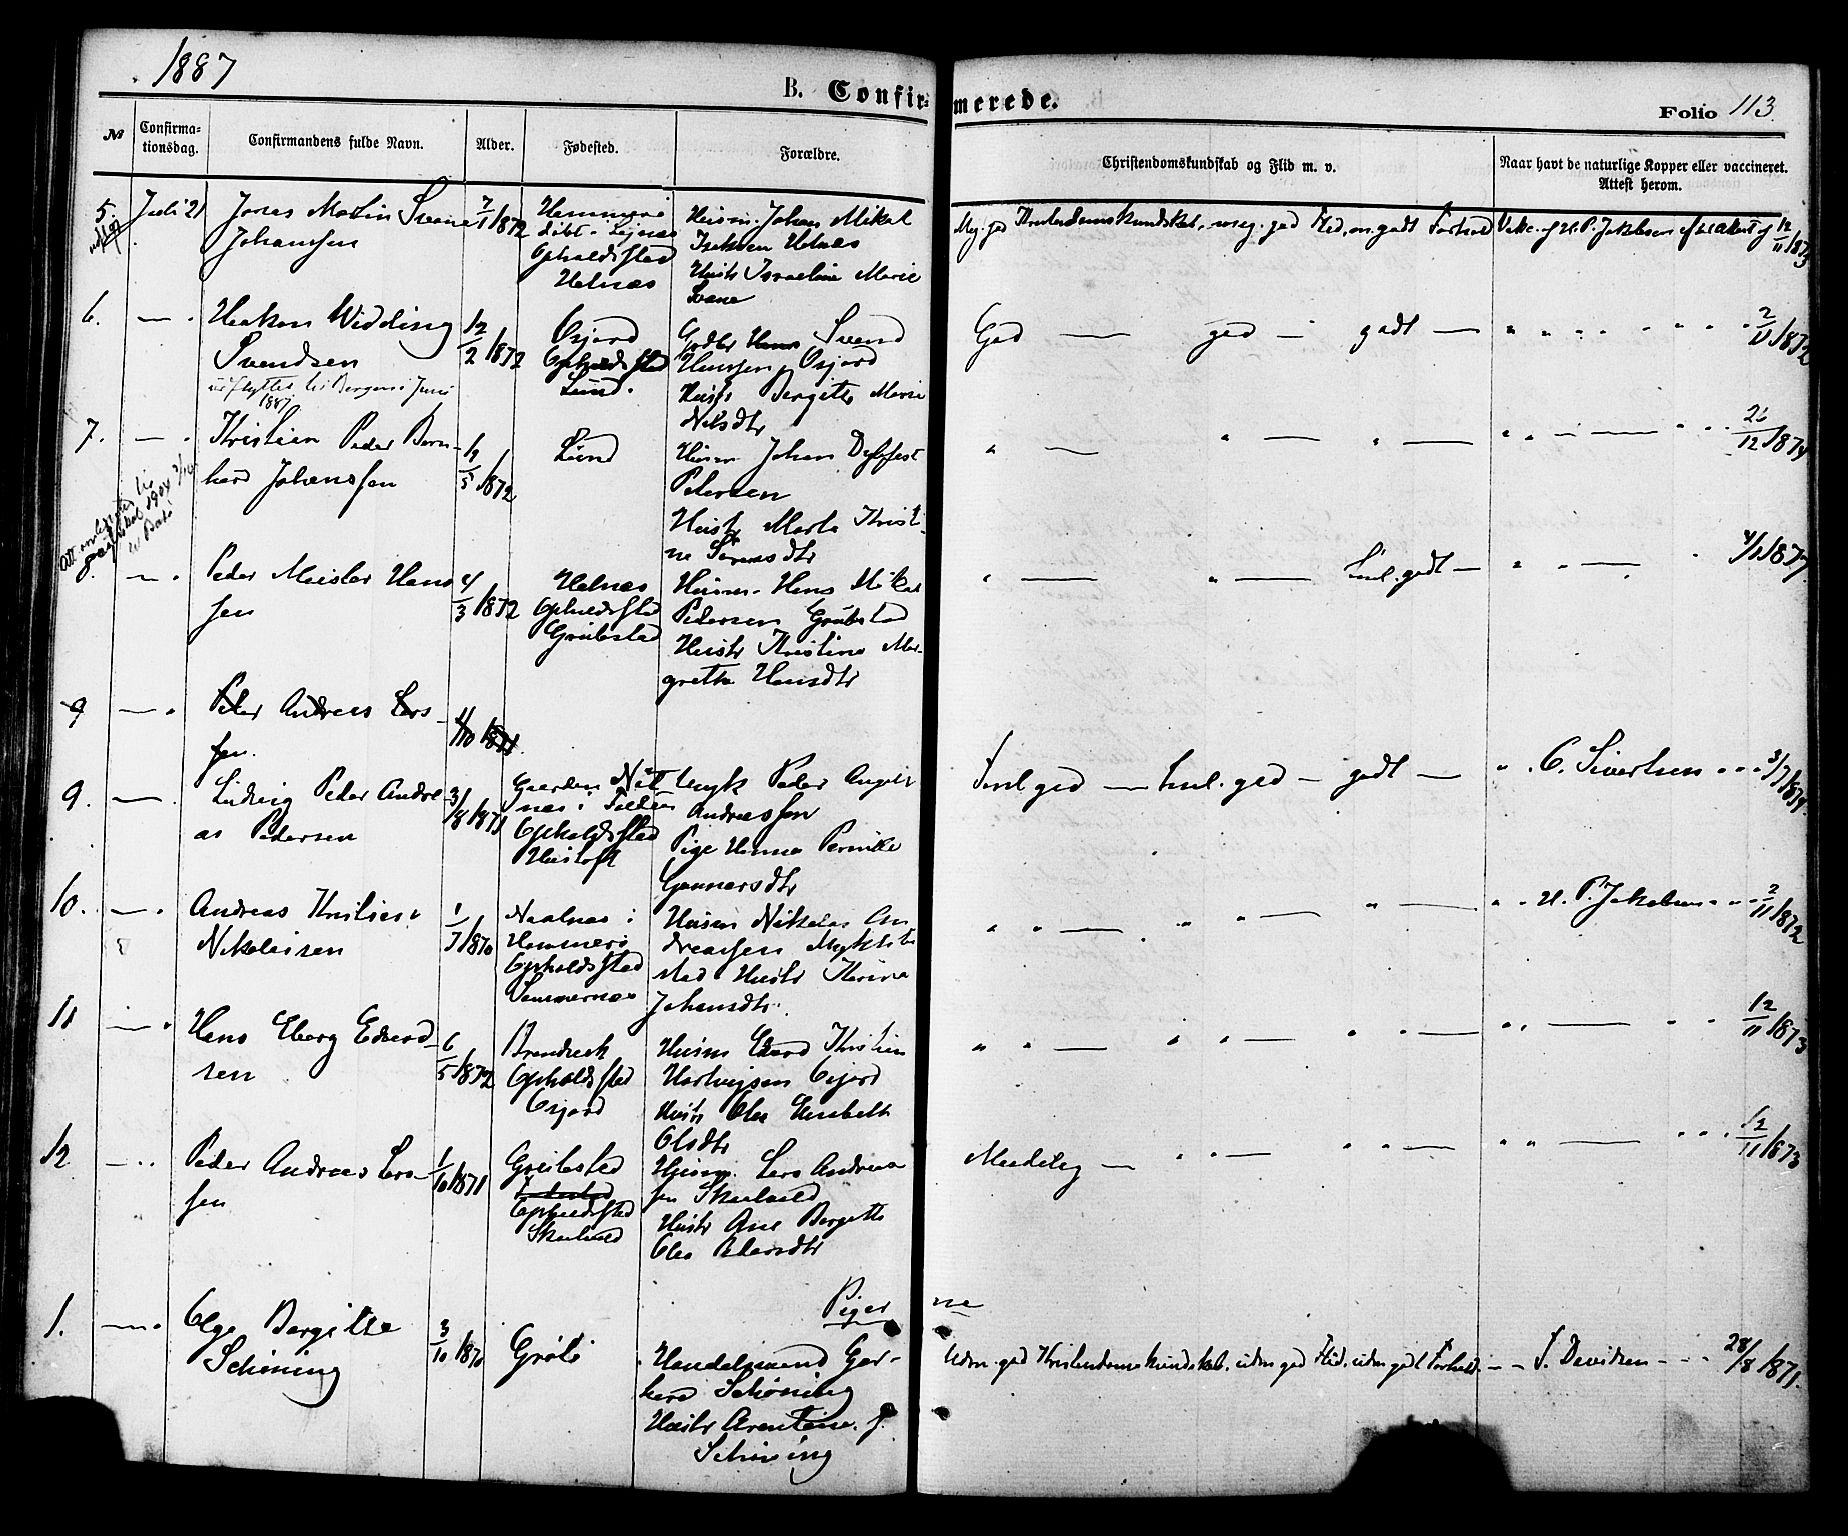 1887
B. Confirmerede.
Folio 113.
№
Confirmationsdag.
Confirmandens fulde Navn.
Alder.
Fødested.
Forældre.
Christendomskundskab og Flid m. v.
Naar havt de naturlige Kopper eller vaccineret. Attest herom.
5.
Juli 21
Jonas Martin Svane
Johanssen
7/1 1872
Hammerø
døbt i
Opholdssted
Helnæs
Husm. Johan Mikal
Isaksen Helnæs
Hustr Israeline Marie
Svane
Meg. god Kristendomskundskab, meg. god Flid, m. godt Forhold
Vakc. af H. P. Jakobsen
12/11 1873
6.
Haakon Widding
Svendsen
udflyttet til Bergen i Juni
1887
12/2 1872
Osjord
Opholdssted
Lund.
Svend
Hanssen Osjord
Hustr Bergitte Marie
Nilsdtr
God — god — godt —
2/11 1872
7.
Kristian Peder Bern-
hard Johanssen
9/5 1872
Lund
Husm Johan
Petersen
Hustr Marta Kristi-
ne
26/12 1874
8.
Peder Meislar Hans
sen
4/3 1872
Helnæs
Opholdssted
Grubstad
Husm. Hans Mikal
Pedersen Grubstad
Hustr Kristine Mar-
grethe Hansdtr
Tml. godt —
9
Peder Andreas Lars-
sen.
9.
Ludvig Peder Andre-
as Pedersen
3/8 1871
Gaarden
Opholdssted
Ungk Peder Angel
Andreassen
Pige Hanna Pernille
Gunnarsdtr
Tml. god — tml. god — godt —
C. Sivertsen
3/7 1874
10.
Andreas Kristian
Nikolaisen
1/7 1870
Naalnæs i
Hammerø
Opholdssted
Sommernæs
Husm Nikolai An
dreassen
stad Hustr
Johansdtr.
H. P. Jakobsen
2/11 1872
11
Hans Eberg Edvard-
sen
6/5 1872
Opholdssted
Osjord
Husm Edvard Kristian
Hartvigsen Osjord
Hustr Olea Elisabeth
Olsdtr
12/11 1873
12
Peder Andreas Lars-
sen
1/10 1871
Grubstad
Opholdssted
Husm. Lars Andreas
sen
Hustr Ane Bergitte
Olea
Maadelig —
12/11 1873
Pigerne
1.
Olga Bergitte
Schøning
3/10 1870
Grøtø
Handelsmand Ger-
hard Schøning
Hustr Arentine f.
Schøning
Udm. god Kristendomskundskab, udm god Flid, udm godt Forhold
J. Davidsen
28/8 1871.